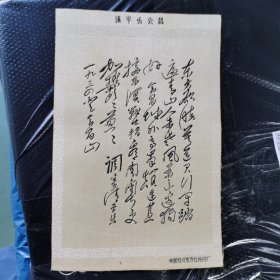 清平乐会昌
东方欲晓莫道君行早踏
遍青山人未老风景这边独
好会昌城外高峰颠连直
接东溟战士指看南粤更
加郁々葱々 调寄清平乐